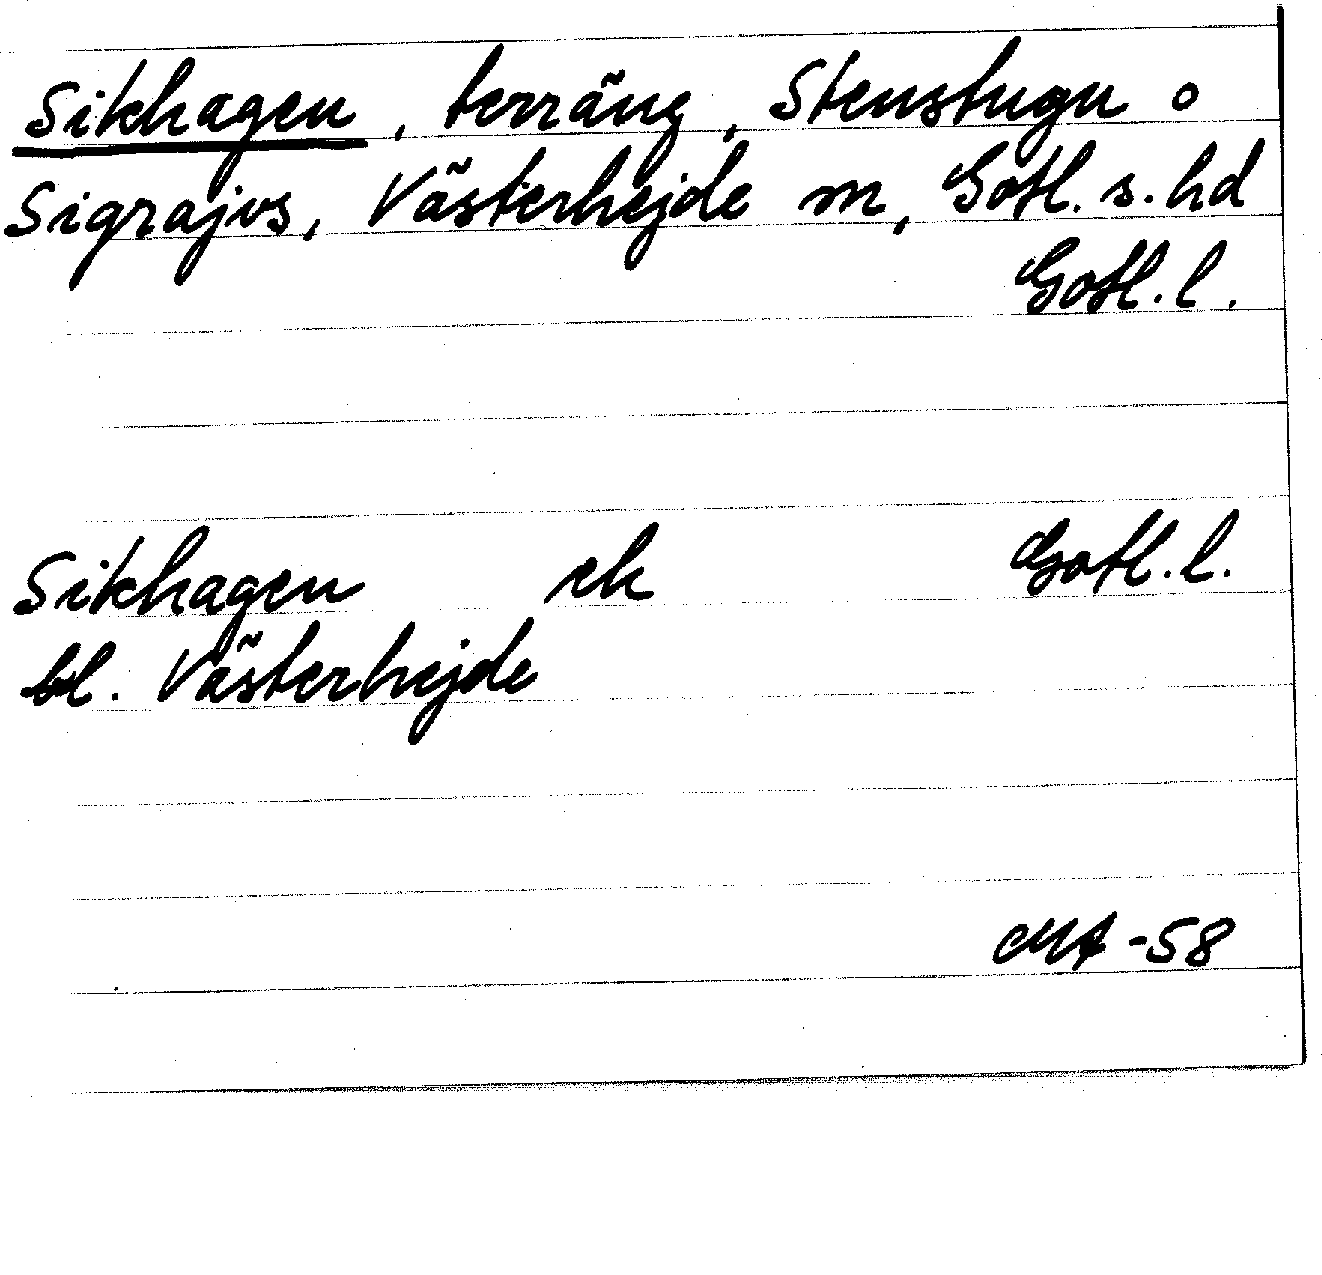 Sikhagen, terräng, Stenstugu o
Sigrajvs, Västerhejde sn, Gotl. s. hd
Gotl. l.
Sikhagen ek Gotl. l.
bl. Västerhejde
MA -58